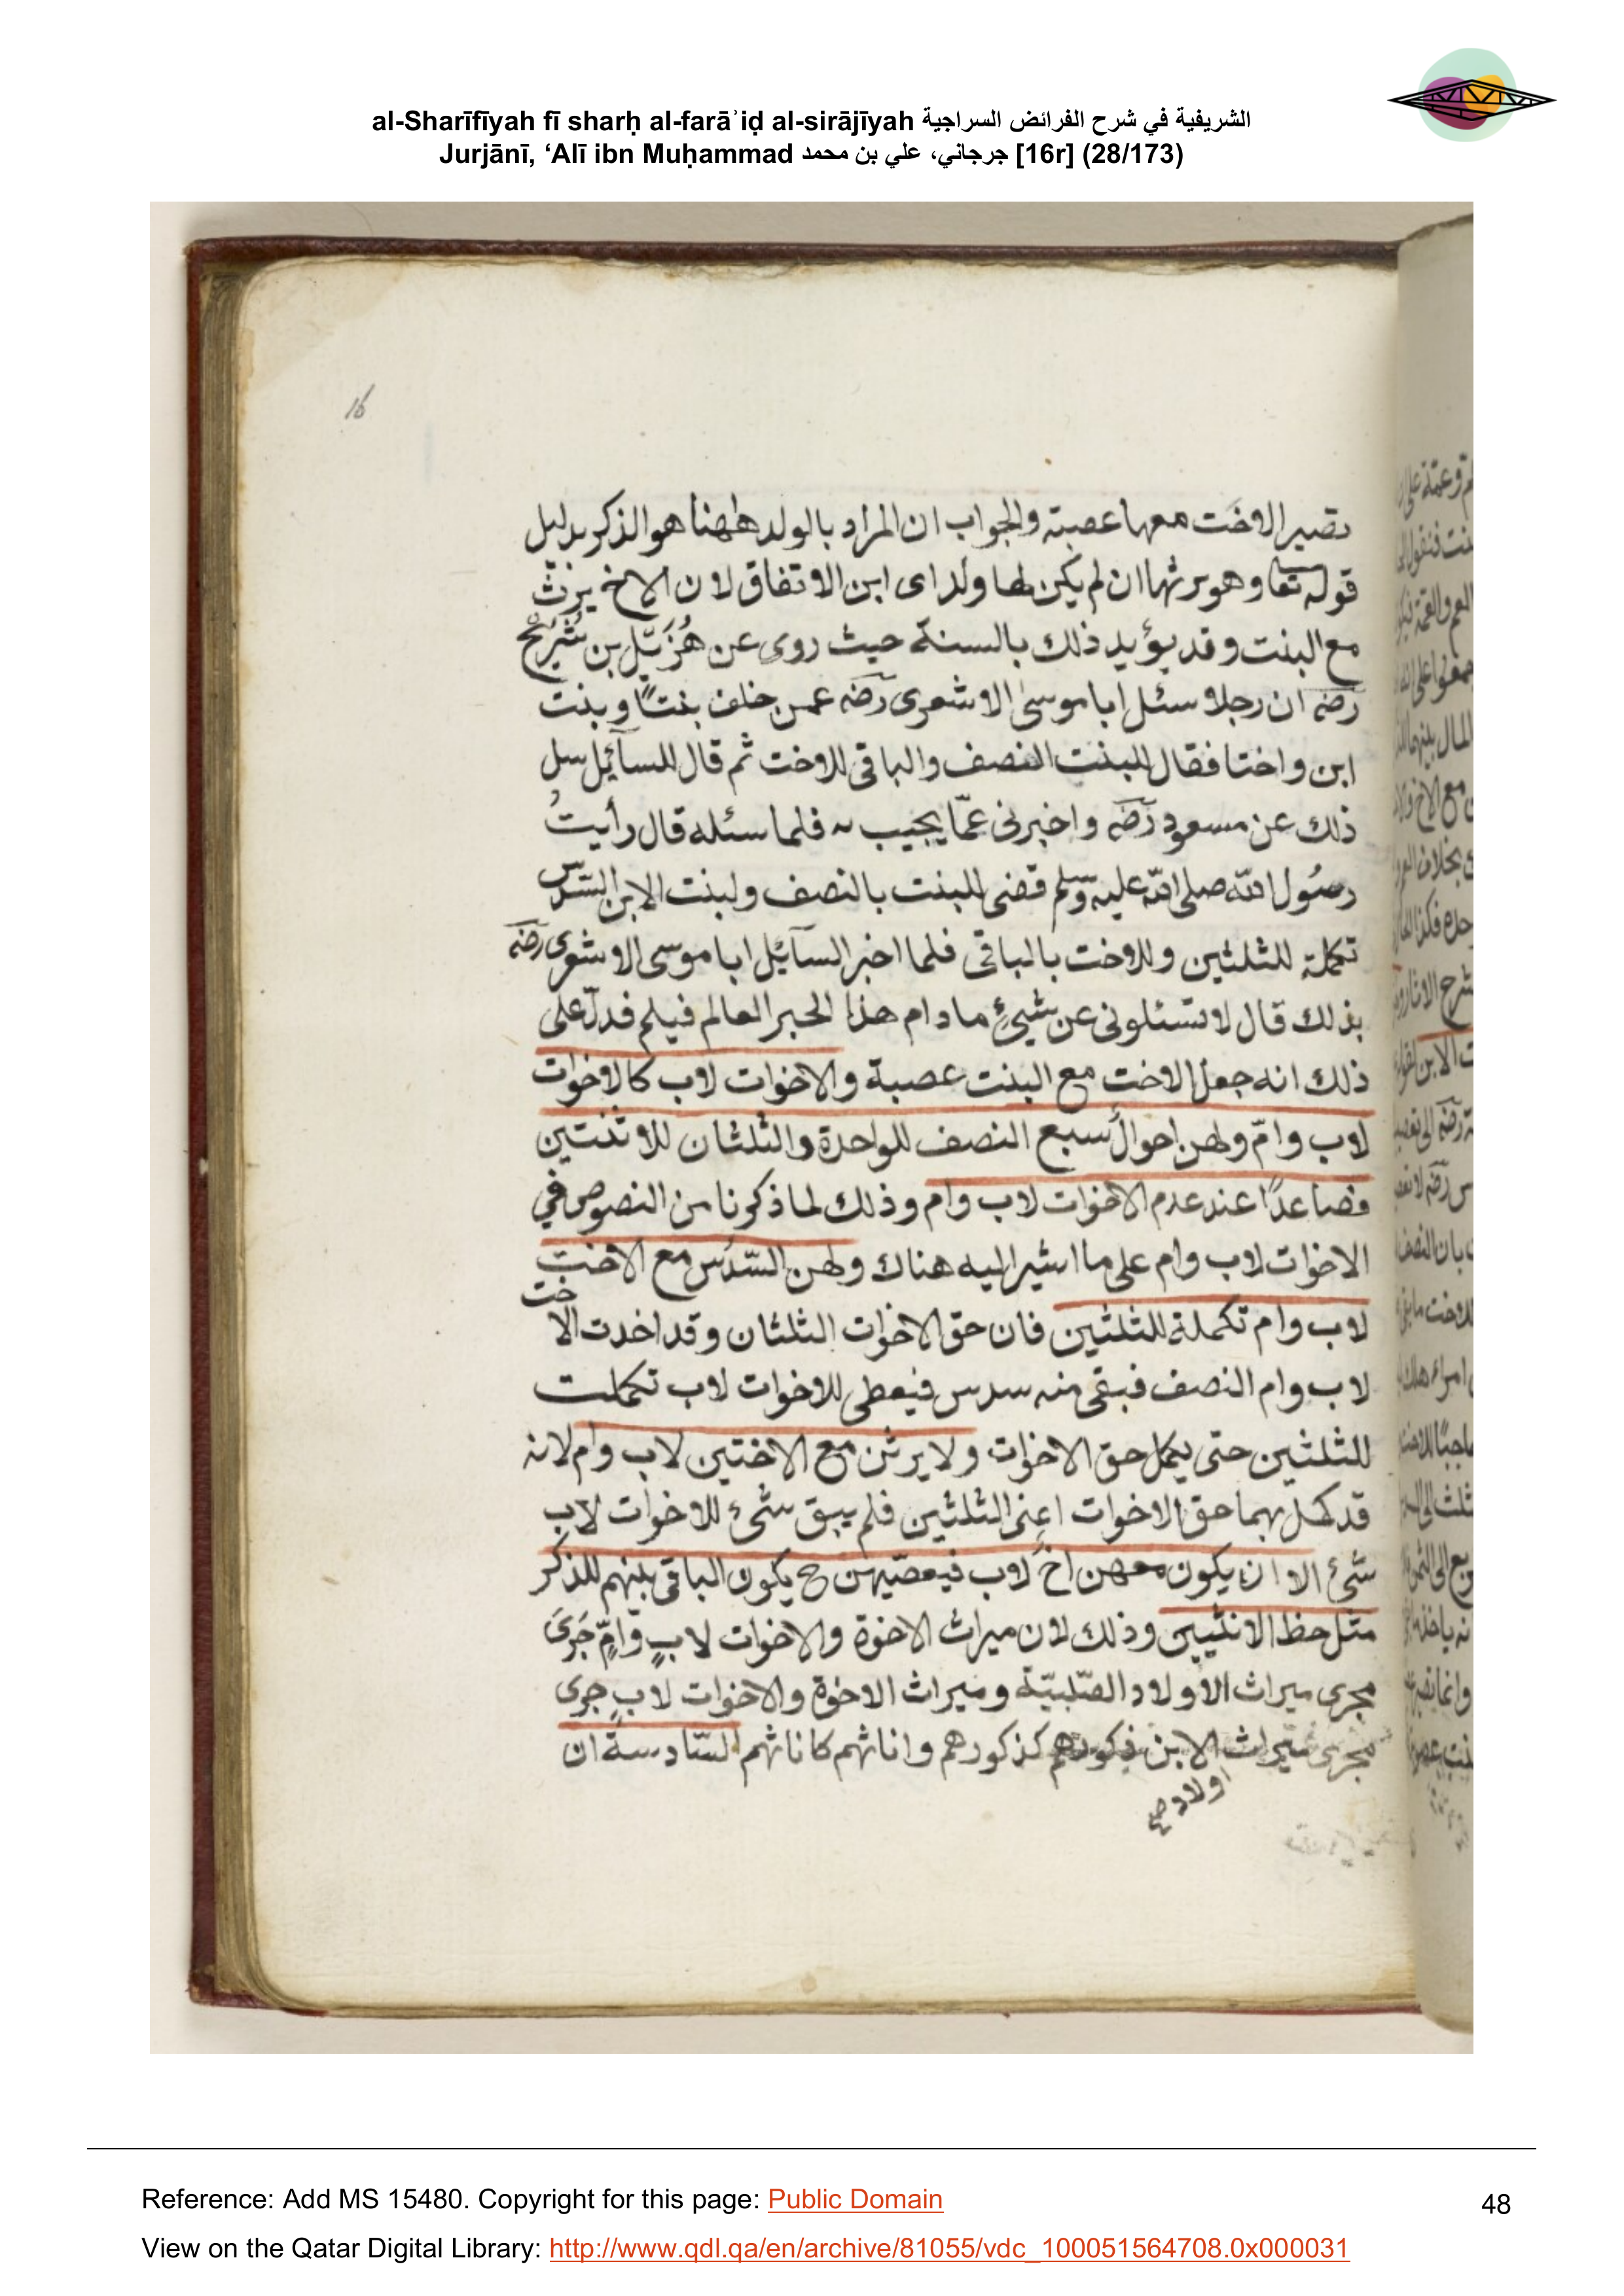 al-Sharīfīyah fī sharḥ al-farāʾiḍ al-sirājīyah الشريفية في شرح الفرائض السراجية
Jurjānī, ‘Alī ibn Muḥammad جرجاني، علي بن محمد [16r] (28/173)
16
تصير الاخت معها عصبة والجواب ان المراد بالولد ههنا هو الذكر بدليل
قوله تعا وهو يرثها ان لم يكن لها ولد اى ابن الاتفاق لان الاخ يرث
مع البنت وقد يؤيد ذلك بالسنة حيث روى عن هُزَيّل بن شُرَيْح
رضه ان رجلا سئل ابا موسى الاشعرى رضه عمن خلف بنتًا وبنت
ابن واختا فقال للبنت النصف والباقى للاخت ثم قال للسآئل سل
ذلك عن مسعود رضه واخبرنى عمّا يجيب به فلما سئله قال رأيتُ
رسُول الله صلى الله عليه وسلم قضى للبنت بالنصف ولبنت الابن السّدس
تكملة للثلثين وللاخت بالباقى فلما اخبر السآئل ابا موسى الاشعرى رضه
بذلك قال لا تسئلونى عن شيئ ما دام هذا الحبر العالم فيلم فدلّ على
ذلك انه جعل الاخت مع البنت عصبة والاخوات لاب كالاخوات
لاب وامّ ولهن احوال سبع النصف للواحدة والثلثان للاثنتين
فصاعدًا عند عدم الاخوات لاب وام وذلك لما ذكرنا من النصوص في
الاخوات لاب وام على ما اشير اليه هناك ولهن السّدُس مع الاخت
لاب وام تكملة للثلثين فان حق الاخوات الثلثان وقد اخدت الاخت
لاب وام النصف فبقى منه سدس فيعطى للاخوات لاب تكملت
للثلثين حتى يكمل حق الاخوات ولا يرثن مع الاختين لاب وام لانه
قد كمل بهما حق الاخوات اعنى الثلثين فلم يبق شئ للاخوات لاب
شئ الا ان يكون معهن اخ لاب فيعصّبهن ح يكون الباقى بينهم للذكر
مثل حظ الانثيين وذلك لان ميراث الاخوة والاخوات لابٍ وامٍّ جَرَى
مجرى ميراث الاولاد الصّلبيّة وميراث الاخوة والاخوات لاب جرى
مجرى ميراث الابن ذكورهم كذكورهم واناثهم كاناثهم السّادسة ان
اولاد صح
Reference: Add MS 15480. Copyright for this page: Public Domain
48
View on the Qatar Digital Library: http://www.qdl.qa/en/archive/81055/vdc_100051564708.0x000031